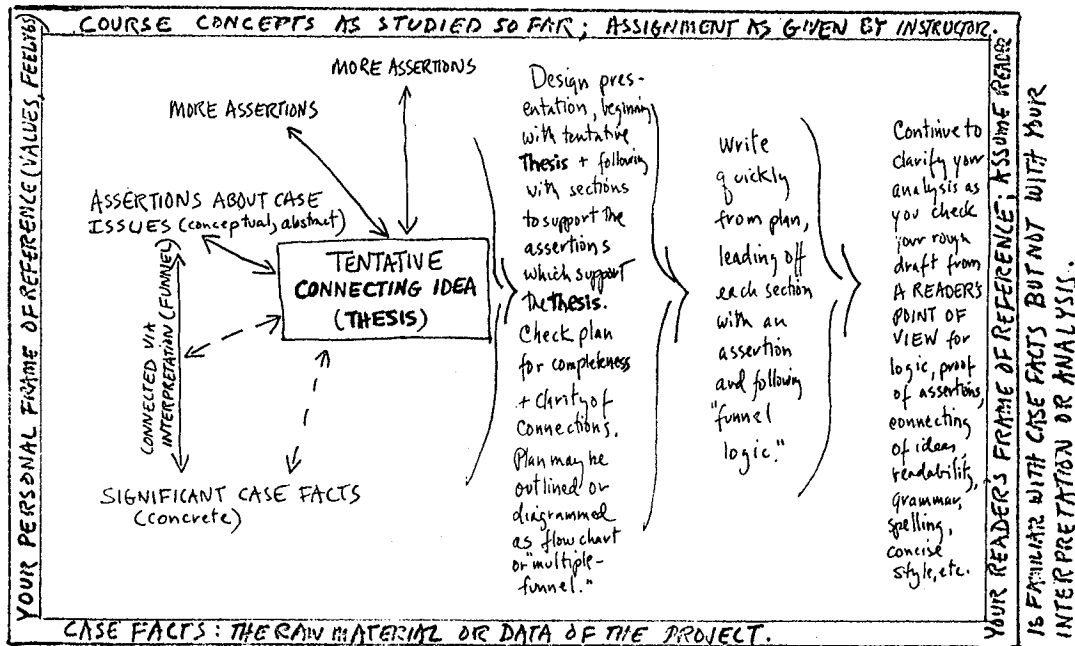 COURSE CONCEPTS AS STUDIED SO FAR; ASSIGNMENT AS GIVEN BY INSTRUCTOR.
YOUR PERSONAL FRAME OF REFERENCE (VALUES, FEELINGS)
MORE ASSERTIONS
MORE ASSERTIONS
ASSERTIONS ABOUT CASE
ISSUES (conceptual, abstract)
TENTATIVE
CONNECTING IDEA
(THESIS)
CONNECTED VIA
INTERPRETATION (FUNNEL)
SIGNIFICANT CASE FACTS
(concrete)
Design pres-
entation, beginning
with tentative
Thesis + following
with sections
to support the
assertions
which support
the Thesis.
Check plan
for completeness
+ clarity of
connections.
Plan may be
outlined or
diagrammed
as flow chart
or "multiple-
funnel."
Write
quickly
from plan,
leading off
each section
with an
assertion
and following
"funnel
logic."
Continue to
clarify your
analysis as
you check
your rough
draft from
A READER'S
POINT OF
VIEW for
logic, proof
of assertions,
connecting
of ideas,
readability,
grammar,
spelling,
concise
style, etc.
YOUR READERS FRAME OF REFERENCE; ASSUME READER
IS FAMILIAR WITH CASE FACTS BUT NOT WITH YOUR
INTERPRETATION OR ANALYSIS.
CASE FACTS: THE RAW MATERIAL OR DATA OF THE PROJECT.